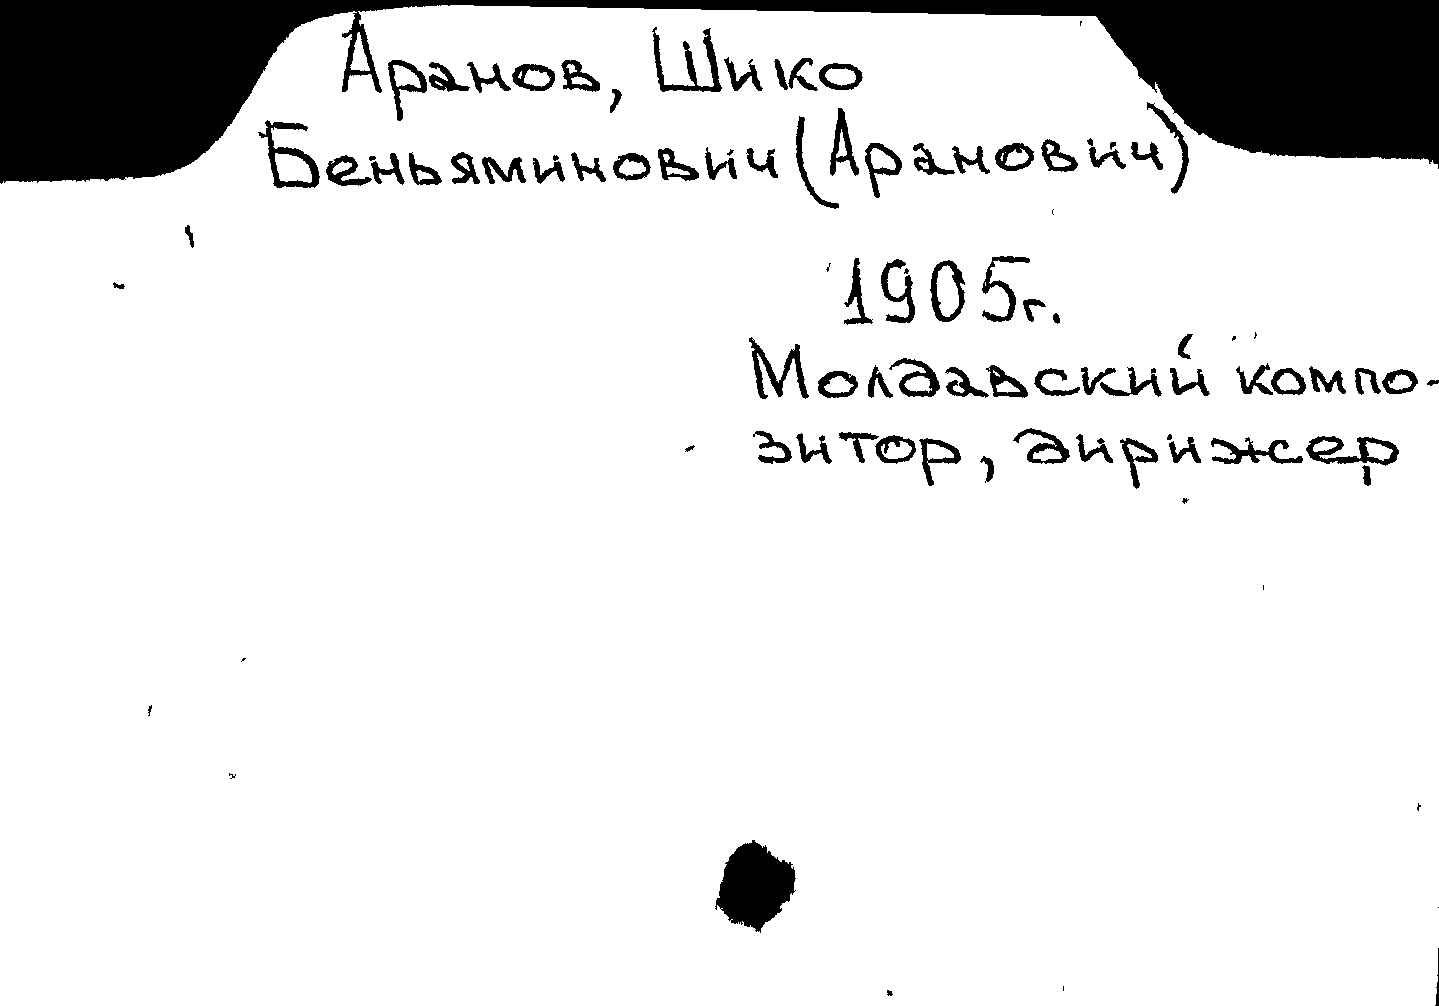 Аранов, Шико
Беньяминович (Аранович)
1905г.
Молдавский компо-
зитор, дирижер